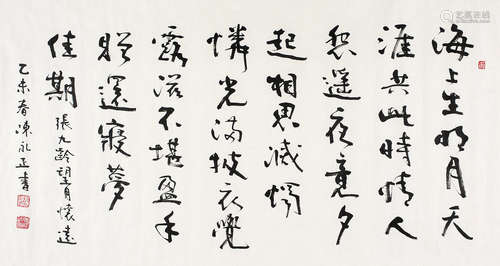 海上生明月天
涯共此時情人
怨遥夜竟夕
起相思滅燭
憐光滿披衣覺
露滋不堪盈手
贈還寢夢
佳期 張九齡望月懷遠
乙未春陳永正書